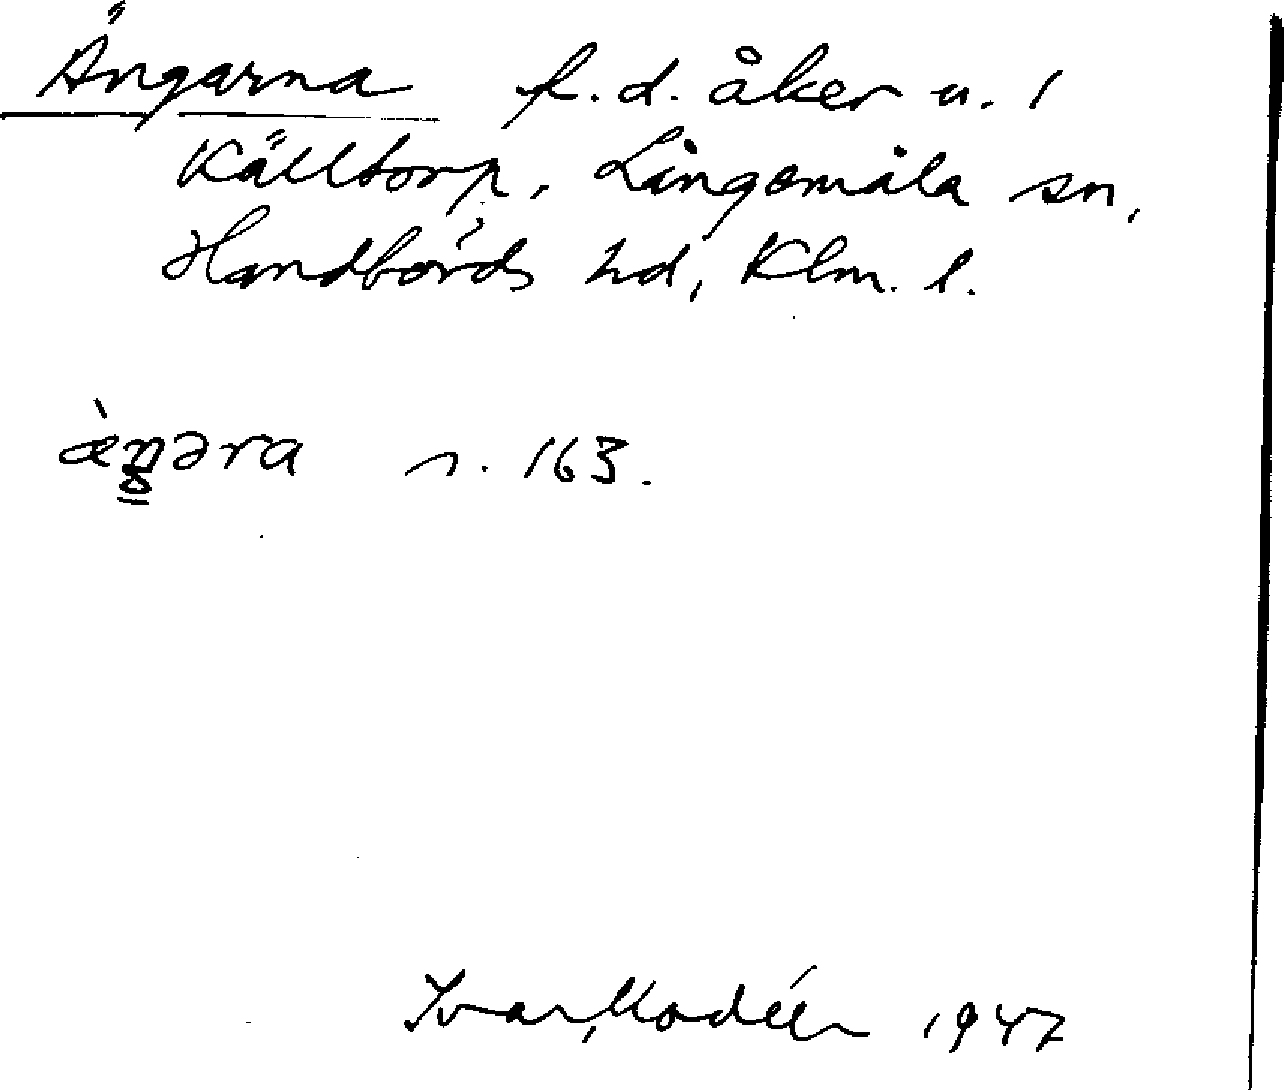 Ängarna f.d. åker u. 1
Källtorp, Långemåla sn,
Handbörds hd, Klm. l.
æ̀ŋəra n. 163.
Ivar Modéer 1947